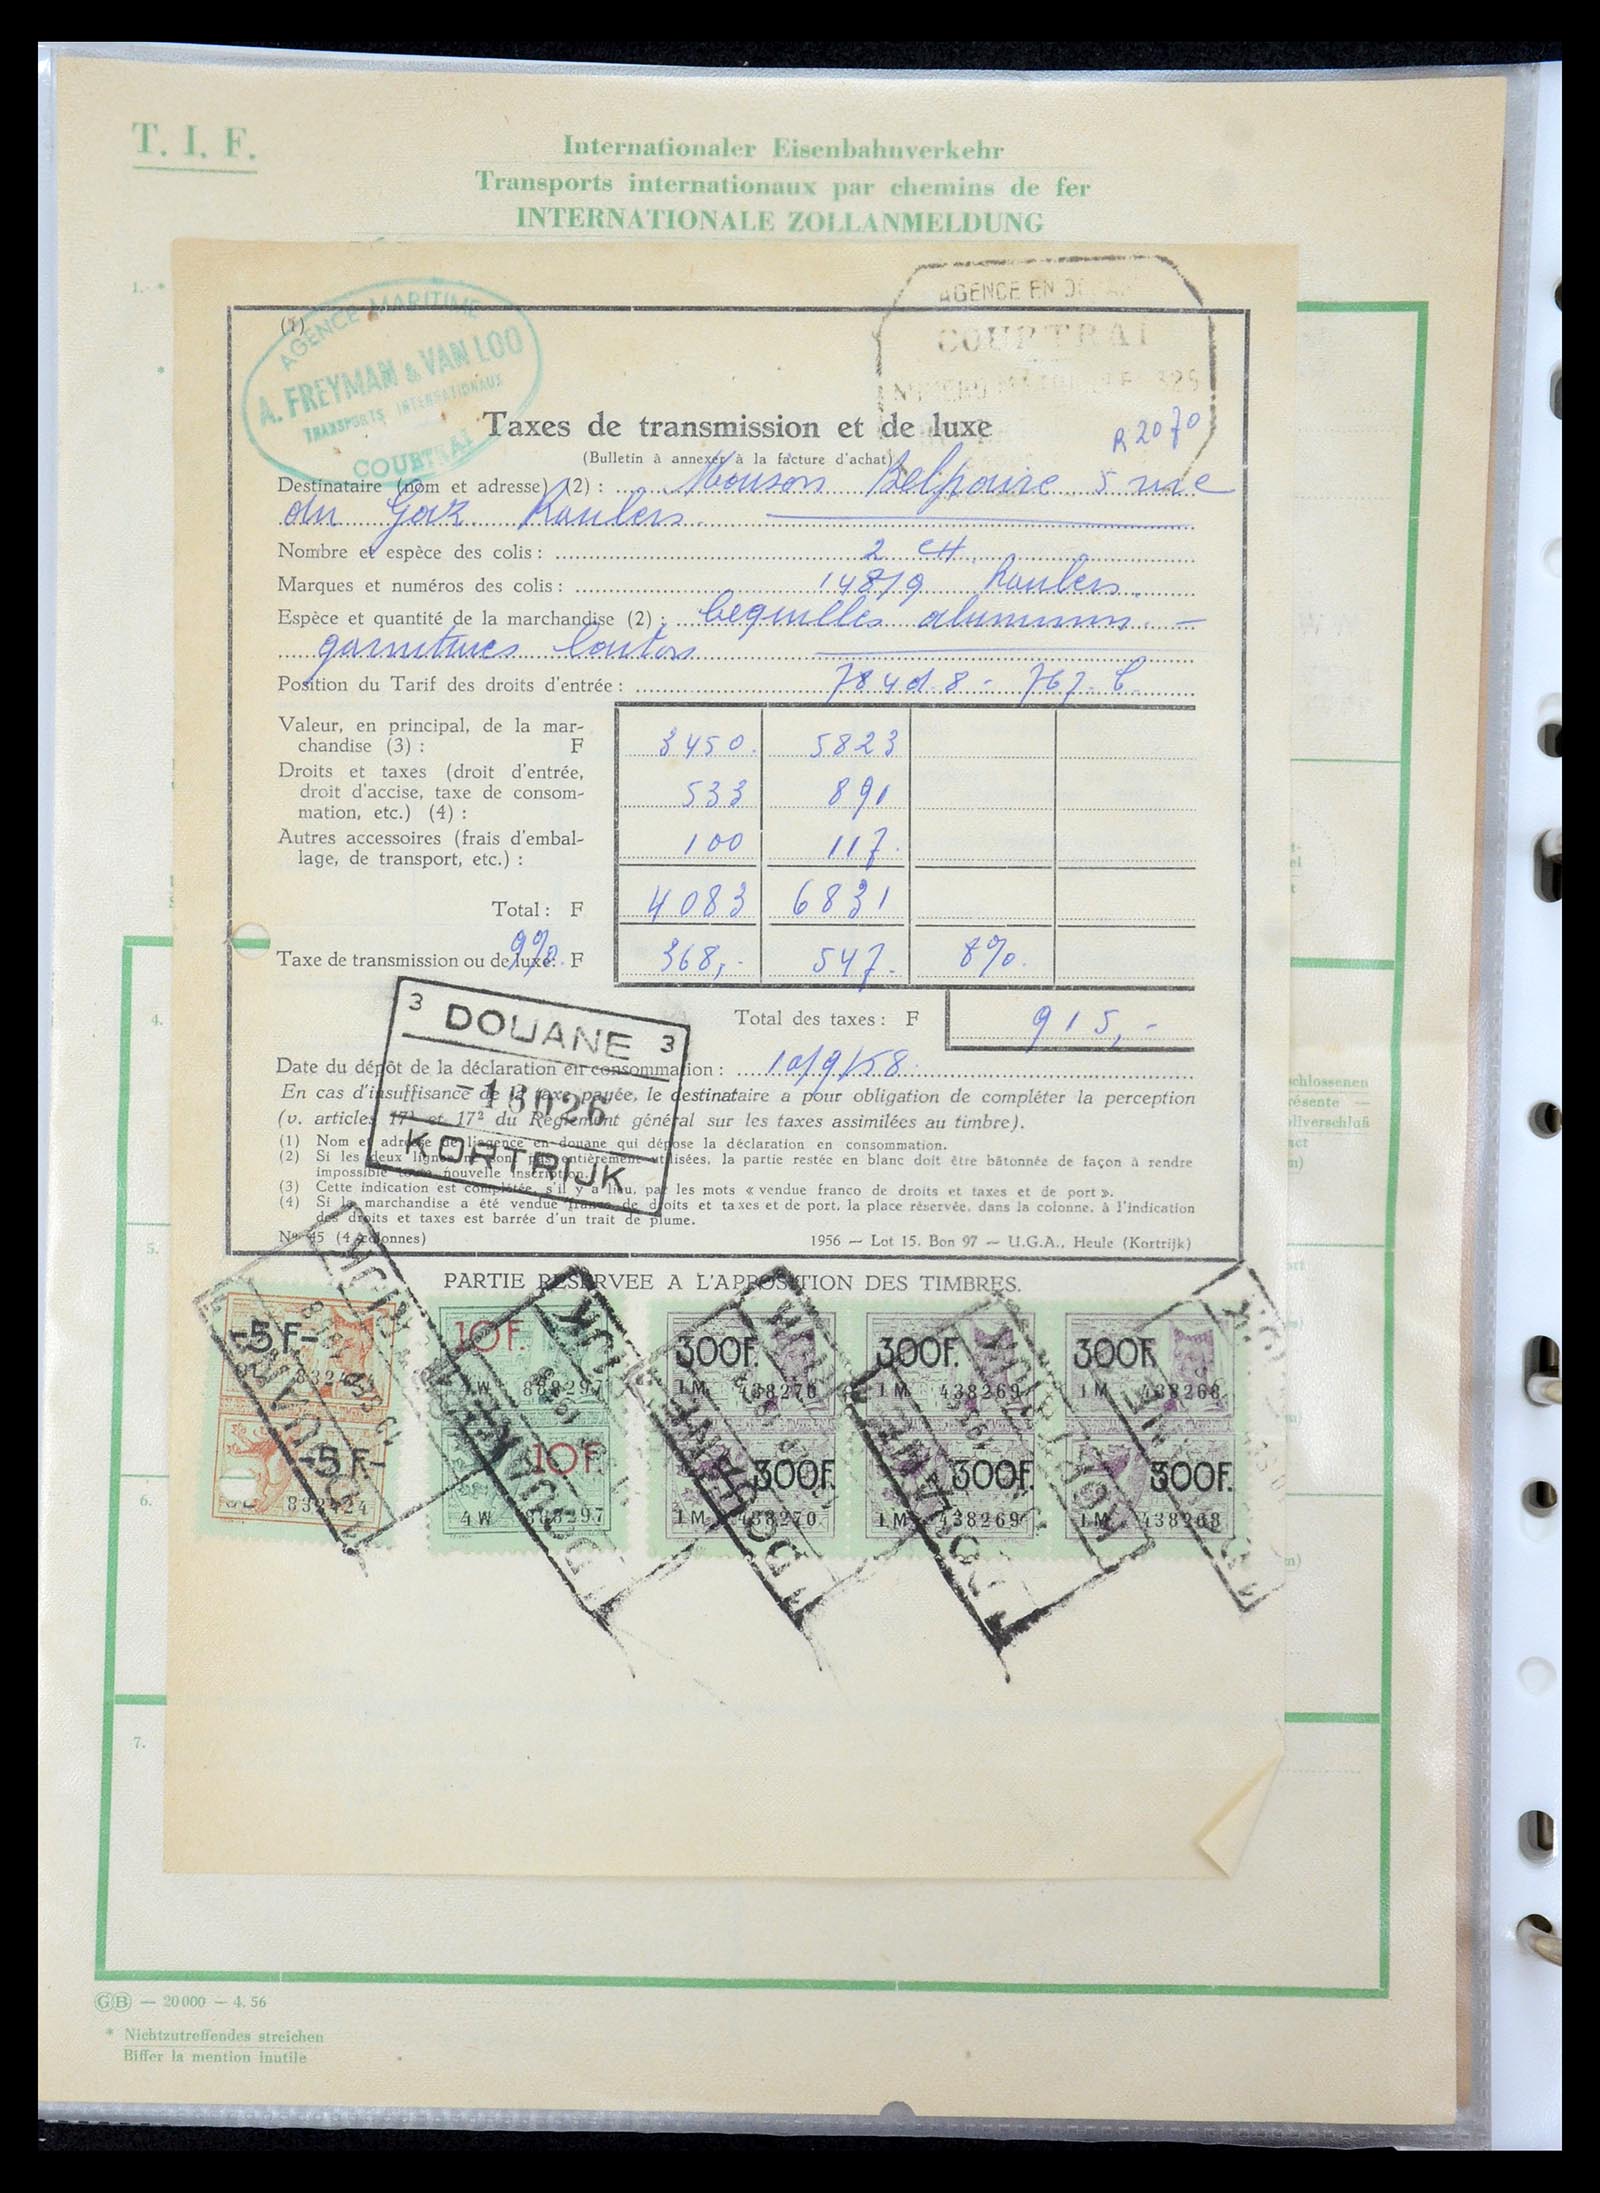 T. I. F.
Internationaler Eisenbahnverkehr
Transports internationaux par chemins de fer
INTERNATIONALE ZOLLANMELDUNG
1. - *
*
(1)
AGENCE MARITIME
A. FREYMAN & VAN LOO
TRANSPORTS INTERNATIONAUX
COURTRAI
AGENCE EN
COURTRAI
R 2070
Taxes de transmission et de luxe
(Bulletin à annexer à la facture d'achat)
Destinataire (nom et adresse) (2) : Maison Belpaire 5 rue
du Gaz Roulers
Nombre et espèce des colis : 2 CH
Marques et numéros des colis : 1487/9 Roulers
Espèce et quantité de la marchandise (2) : bequilles aluminium. —
garnitures laiton
Position du Tarif des droits d'entrée : 784 d. 8 - 767. C.
Valeur, en principal, de la mar-
chandise (3) : F 3450. 5823
Droits et taxes (droit d'entrée,
droit d'accise, taxe de consom- 533 891
mation, etc.) (4) :
Autres accessoires (frais d'embal- 100 117.
lage, de transport, etc.) :
Total : F 4083 6831
Taxe de transmission ou de luxe: 9%. F 368,- 547.- 8%.
Total des taxes : F 915,-
3 DOUANE 3
18026
KORTRIJK
Date du dépôt de la déclaration en consommation : 10/9/58.
En cas d'insuffisance de la taxe payée, le destinataire a pour obligation de compléter la perception
(v. articles 17¹ et 17² du Règlement général sur les taxes assimilées au timbre).
(1) Nom et adresse de l'agence en douane qui dépose la déclaration en consommation.
(2) Si les deux lignes ne sont pas entièrement utilisées, la partie restée en blanc doit être bâtonnée de façon à rendre
impossible toute nouvelle inscription.
(3) Cette indication est complétée, s'il y a lieu, par les mots « vendue franco de droits et taxes et de port ».
(4) Si la marchandise a été vendue franco de droits et taxes et de port, la place réservée, dans la colonne, à l'indication
des droits et taxes est barrée d'un trait de plume.
No 45 (4 colonnes) 1956 — Lot 15. Bon 97 — U.G.A., Heule (Kortrijk)
PARTIE RESERVEE A L'APPOSITION DES TIMBRES.
-5F- 10F. 300F. 300F. 300F.
832424 4W 888297 1M 438270 1M 438269 1M 438268
-5F- 10F. 300F. 300F. 300F.
832424 4W 888297 1M 438270 1M 438269 1M 438268
4.
5.
6.
7.
schlossenen
résente —
ollverschluß
GB — 20 000 — 4. 56
* Nichtzutreffendes streichen
Biffer la mention inutile